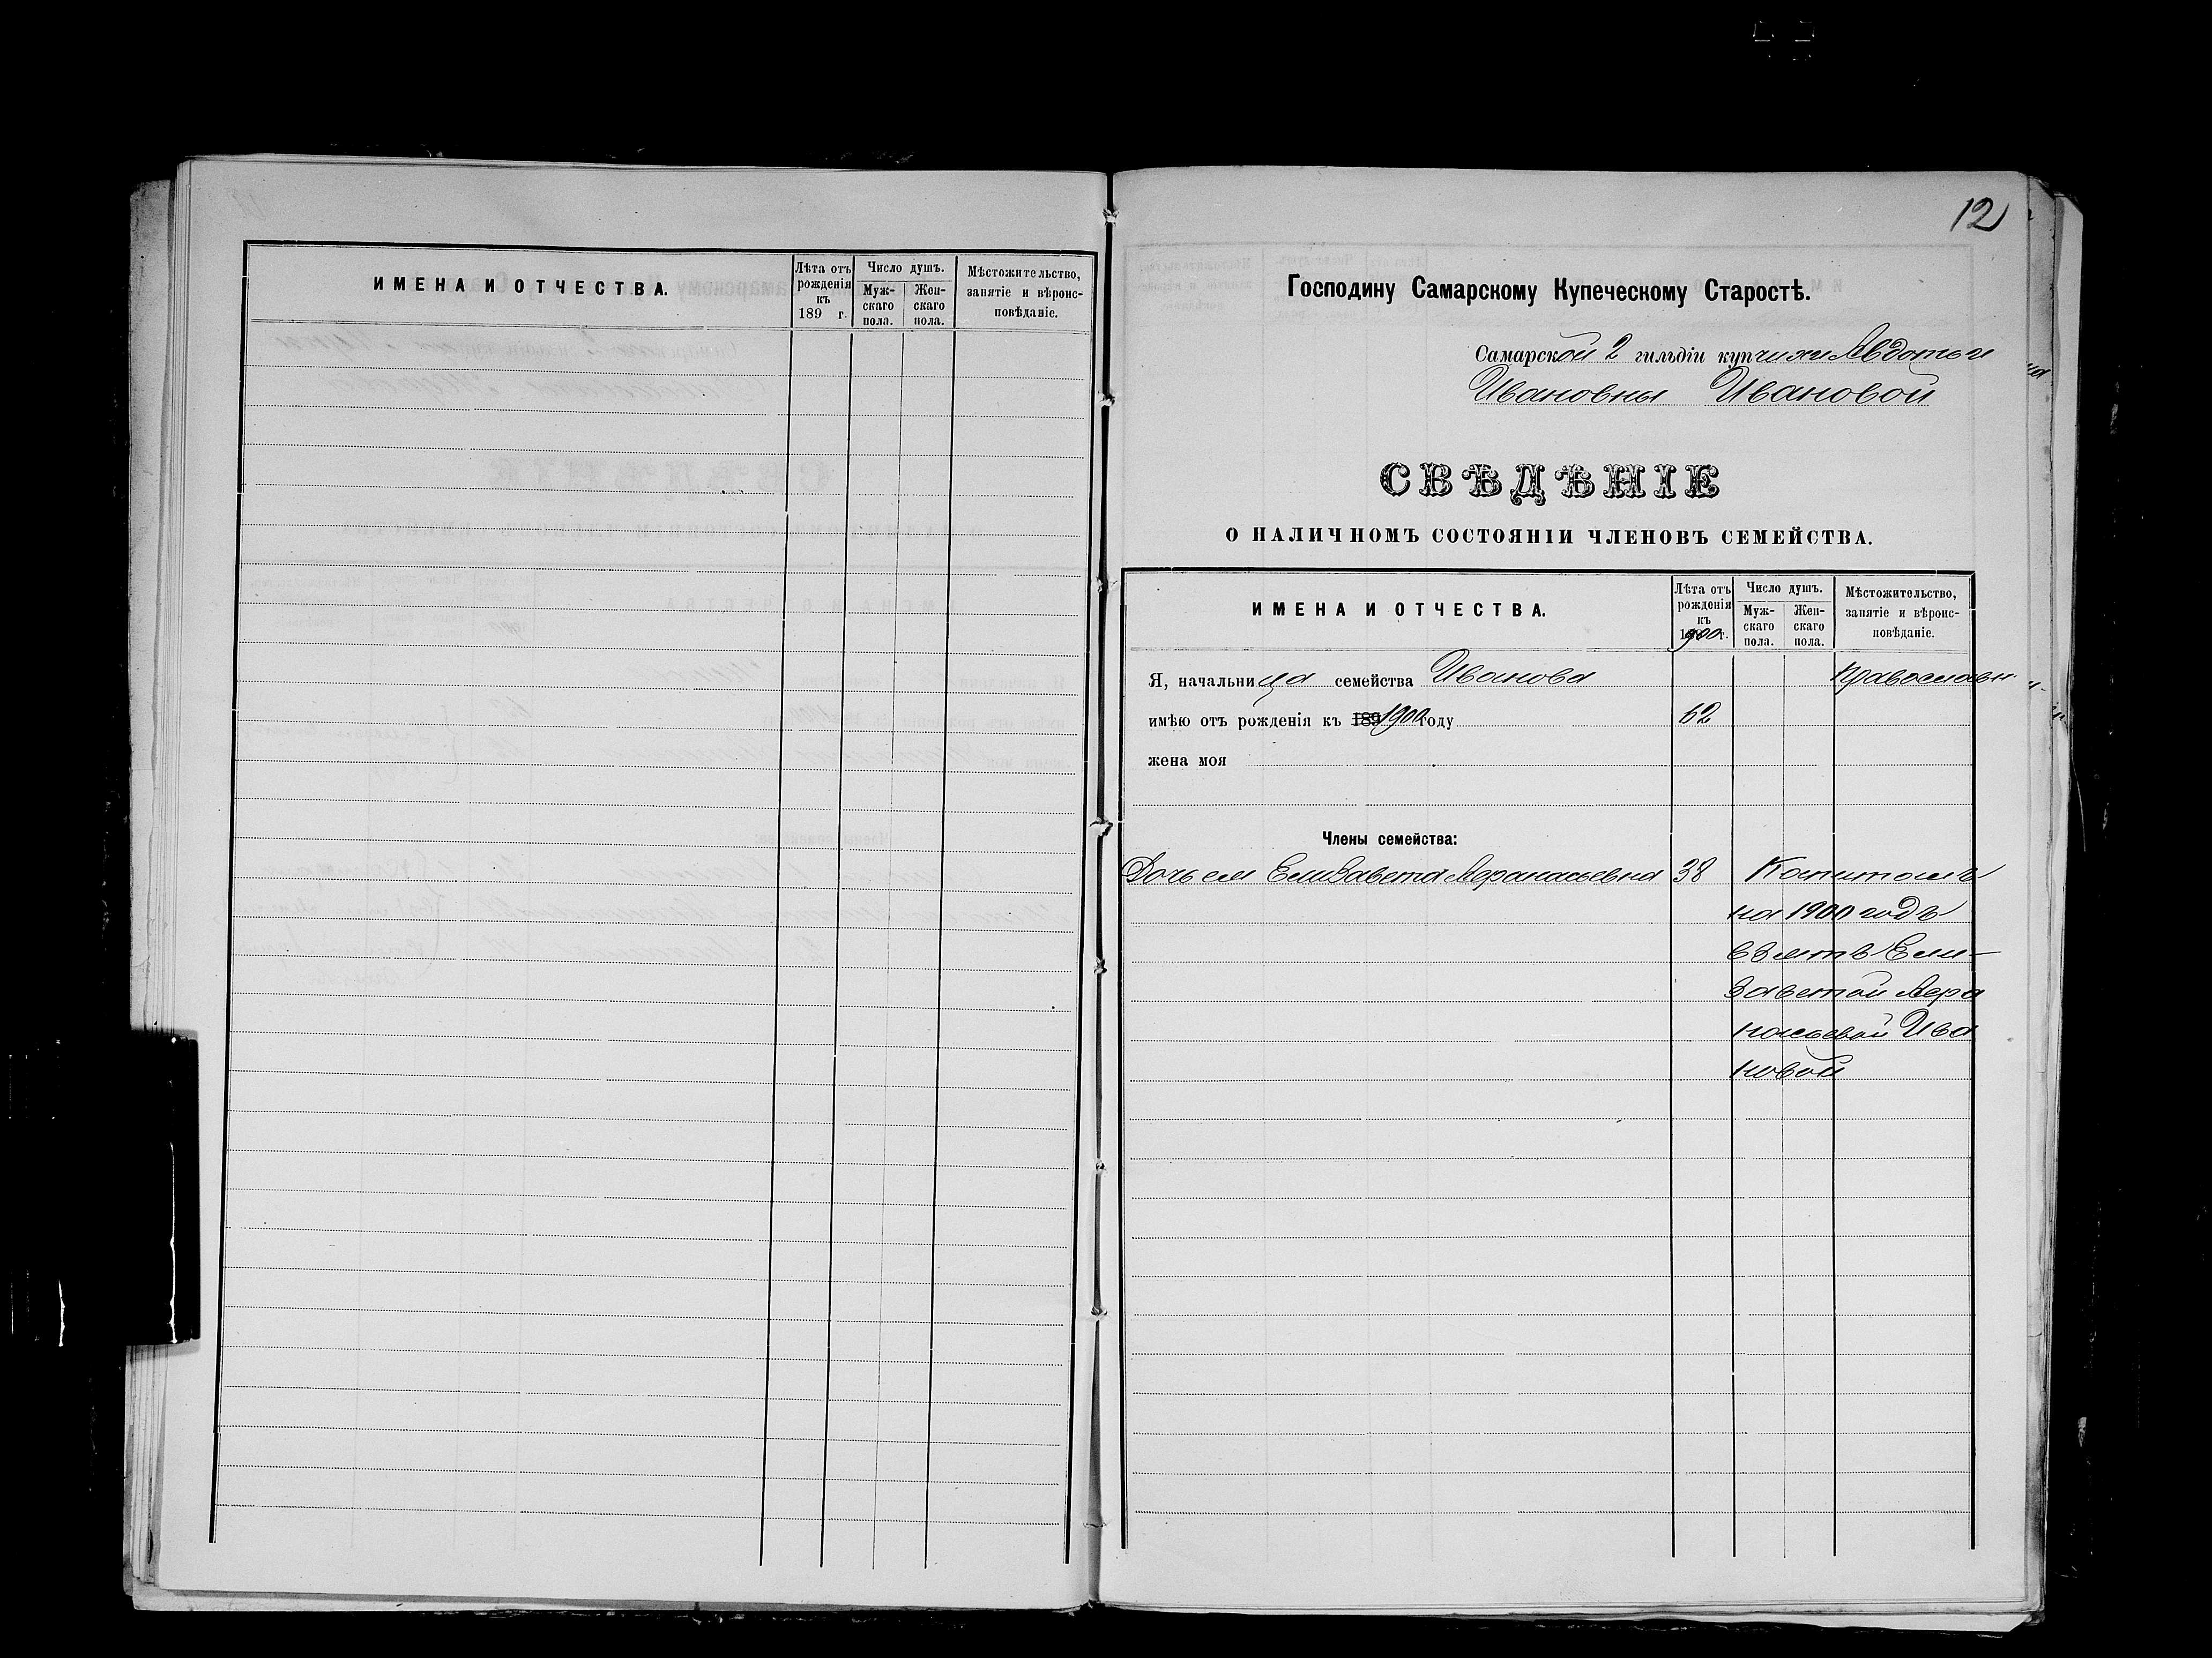 ИМЕНА И ОТЧЕСТВА.
Лѣта отъ рожденія къ 189 г.
Число душъ.
Муж-скаго пола.
Жен-скаго пола.
Мѣстожительство, занятіе и вѣроис-повѣданіе.
12
Господину Самарскому Купеческому Старостѣ.
Самарской 2 гильдіи купчихи Авдотьи
Ивановны Ивановой
СВѢДѢНІЕ
О НАЛИЧНОМЪ СОСТОЯНІИ ЧЛЕНОВЪ СЕМЕЙСТВА.
ИМЕНА И ОТЧЕСТВА.
Лѣта отъ рожденія къ 1900 г.
Число душъ.
Муж-скаго пола.
Жен-скаго пола.
Мѣстожительство, занятіе и вѣроис-повѣданіе.
Я, начальница семейства Иванова Православн.
имѣю отъ рожденія къ 189 1900 году 62
жена моя
Члены семейства:
Дочь ея Елизавета Афанасьевна 38 Капиталъ
на 1900 годъ
взятъ Ели-
заветой Афа
насьевой Ива
новой